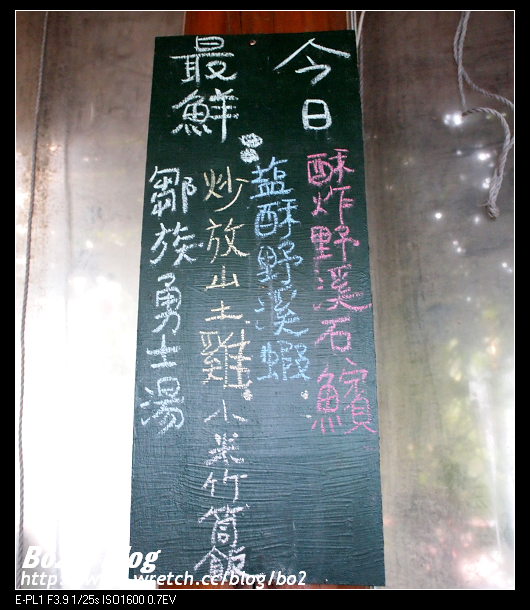 今日
最鮮
酥炸野溪石鱝
鹽酥野溪蝦
炒放山土雞 小米竹筒飯
鄒族勇士湯
Blog
wretch.cc/blog/bo2
E-PL1 F3.9 1/25s ISO1600 0.7EV